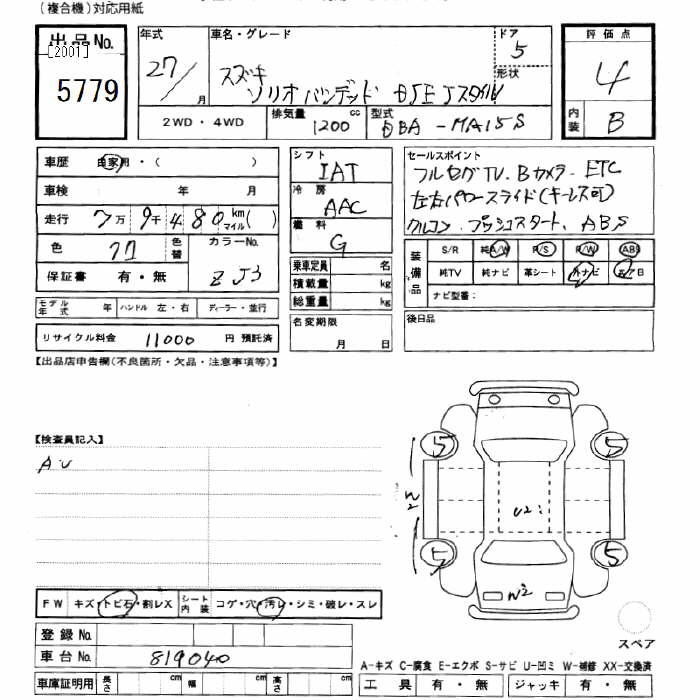 (複合機)対応用紙
出品No.
[2001]
5779
年式
27/ 月
車名・グレード
スズキ
ソリオバンデッド
ドア
5
形状
評価点
4
内装
B
2WD・4WD
排気量
1200 cc
型式
DBA-MA15S
車歴 自家用・( )
車検 年 月
走行 7万 9千 480 km マイル( )
色
色替
カラーNo.
ZJ3
保証書 有・無
モデル年式 年 ハンドル 左・右 ディーラー・並行
リサイクル料金 11000 円 預託済
シフト
IAT
冷房
AAC
燃料
G
乗車定員 名
積載量 kg
総重量 kg
名変期限
月 日
セールスポイント
フルセグTV. Bカメラ. ETC
左右パワースライド(キーレス可)
プッシュスタート、ABS
装備品
S/R 純A/W P/S P/W ABS
純TV 純ナビ 革シート 外ナビ
ナビ型番:
後日品
【出品店申告欄(不良箇所・欠品・注意事項等)】
【検査員記入】
AU
5
5
5
5
W2
U2
W2
スペア
FW キズ・トビ石・割レX シート内装 コゲ・穴・汚レ・シミ・破レ・スレ
登録No.
車台No. 819040
車庫証明用 長さ cm 幅 cm 高さ cm
A-キズ C-腐食 E-エクボ S-サビ U-凹ミ W-補修 XX-交換済
工具 有・無 ジャッキ 有・無